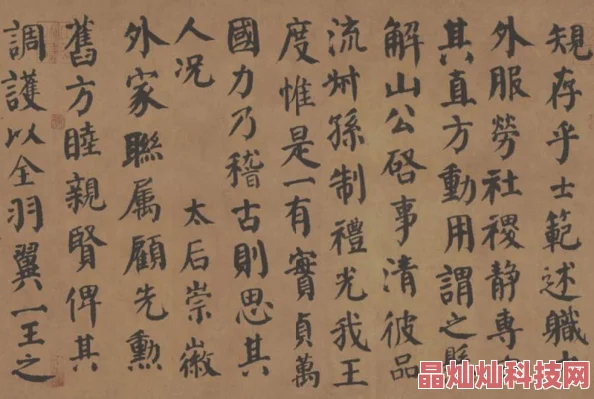 規存乎士範述職
外服勞社稷静專
其直方動用謂之
解山公啓事清彼品
流叔孫制禮光我王
度惟是一有實貞萬
國力乃稽古則思其
人況 太后崇徽
外家聯属顧先勳
舊方睦親賢俾其
調護以全羽翼一王之
晶灿灿科技网